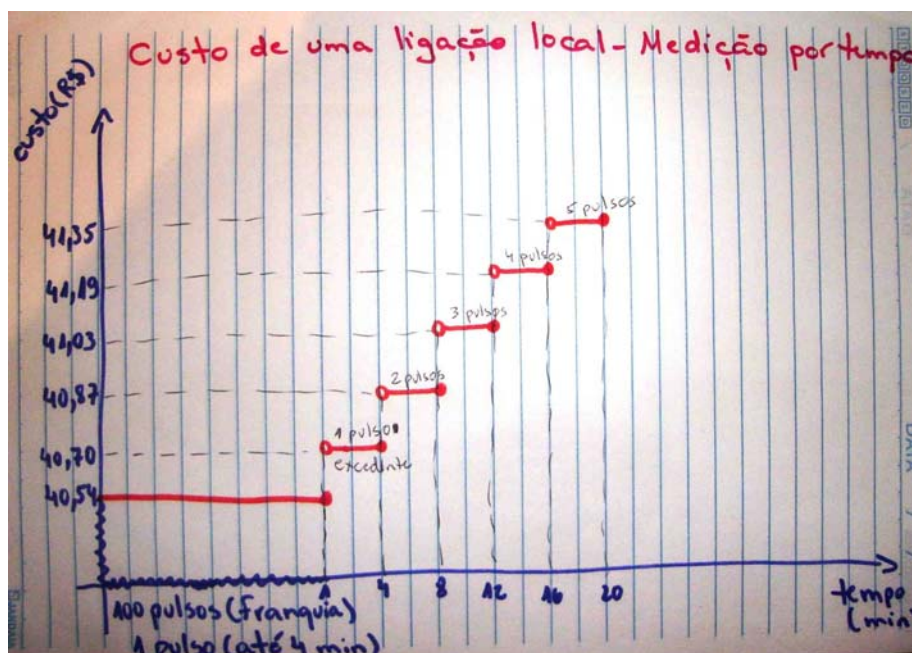 Custo de uma ligação local - Medição por tempo
custo (R$)
41,35
41,19
41,03
40,87
40,70
40,54
5 pulsos
4 pulsos
3 pulsos
2 pulsos
1 pulso
excedente
1 4 8 12 16 20
tempo
(min)
100 pulsos (franquia)
1 pulso (até 4 min)